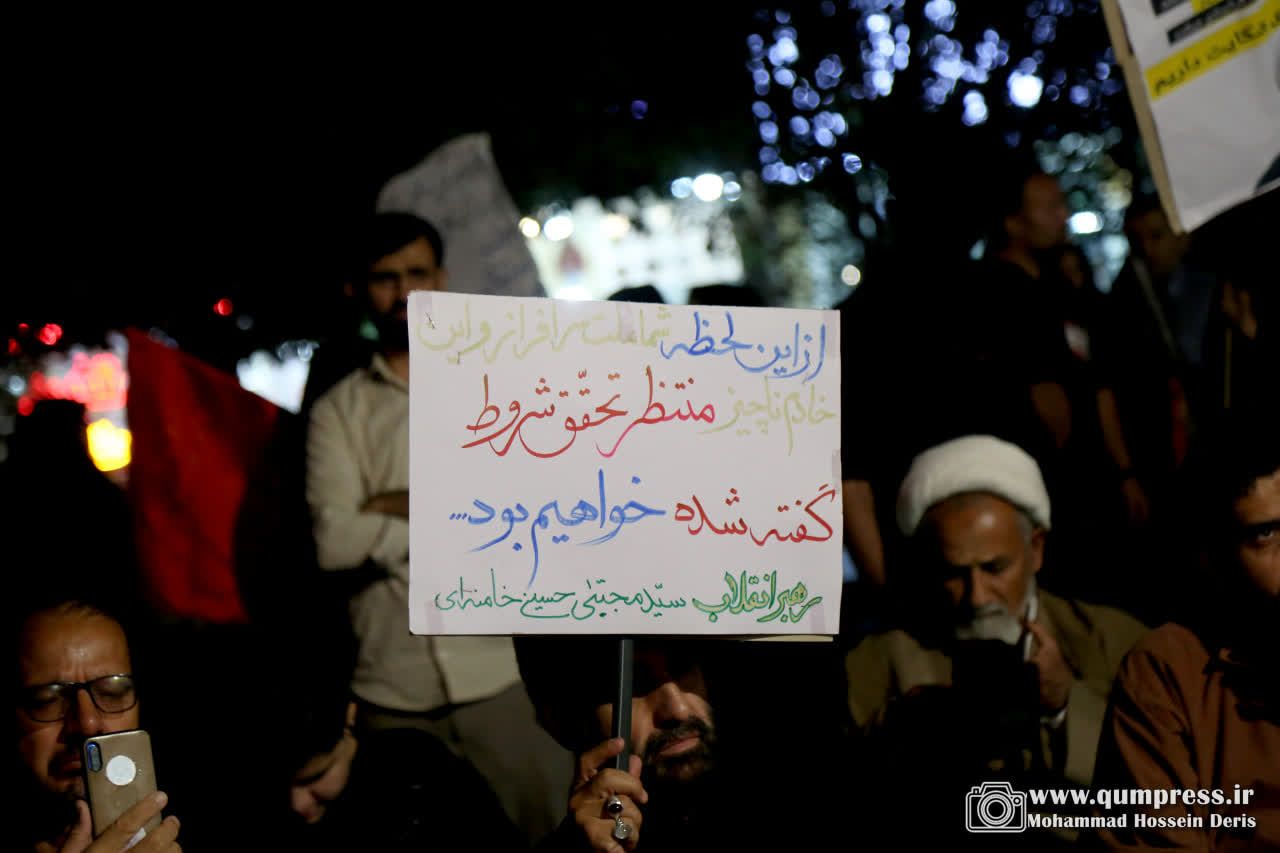 از این لحظه شما ملت سرافراز و این
خادم ناچیز منتظر تحقّق شروط
گفته شده خواهیم بود...
رهبر انقلاب سیّد مجتبی حسینی خامنه‌ای
شکایت داریم
www.qumpress.ir
Mohammad Hossein Deris